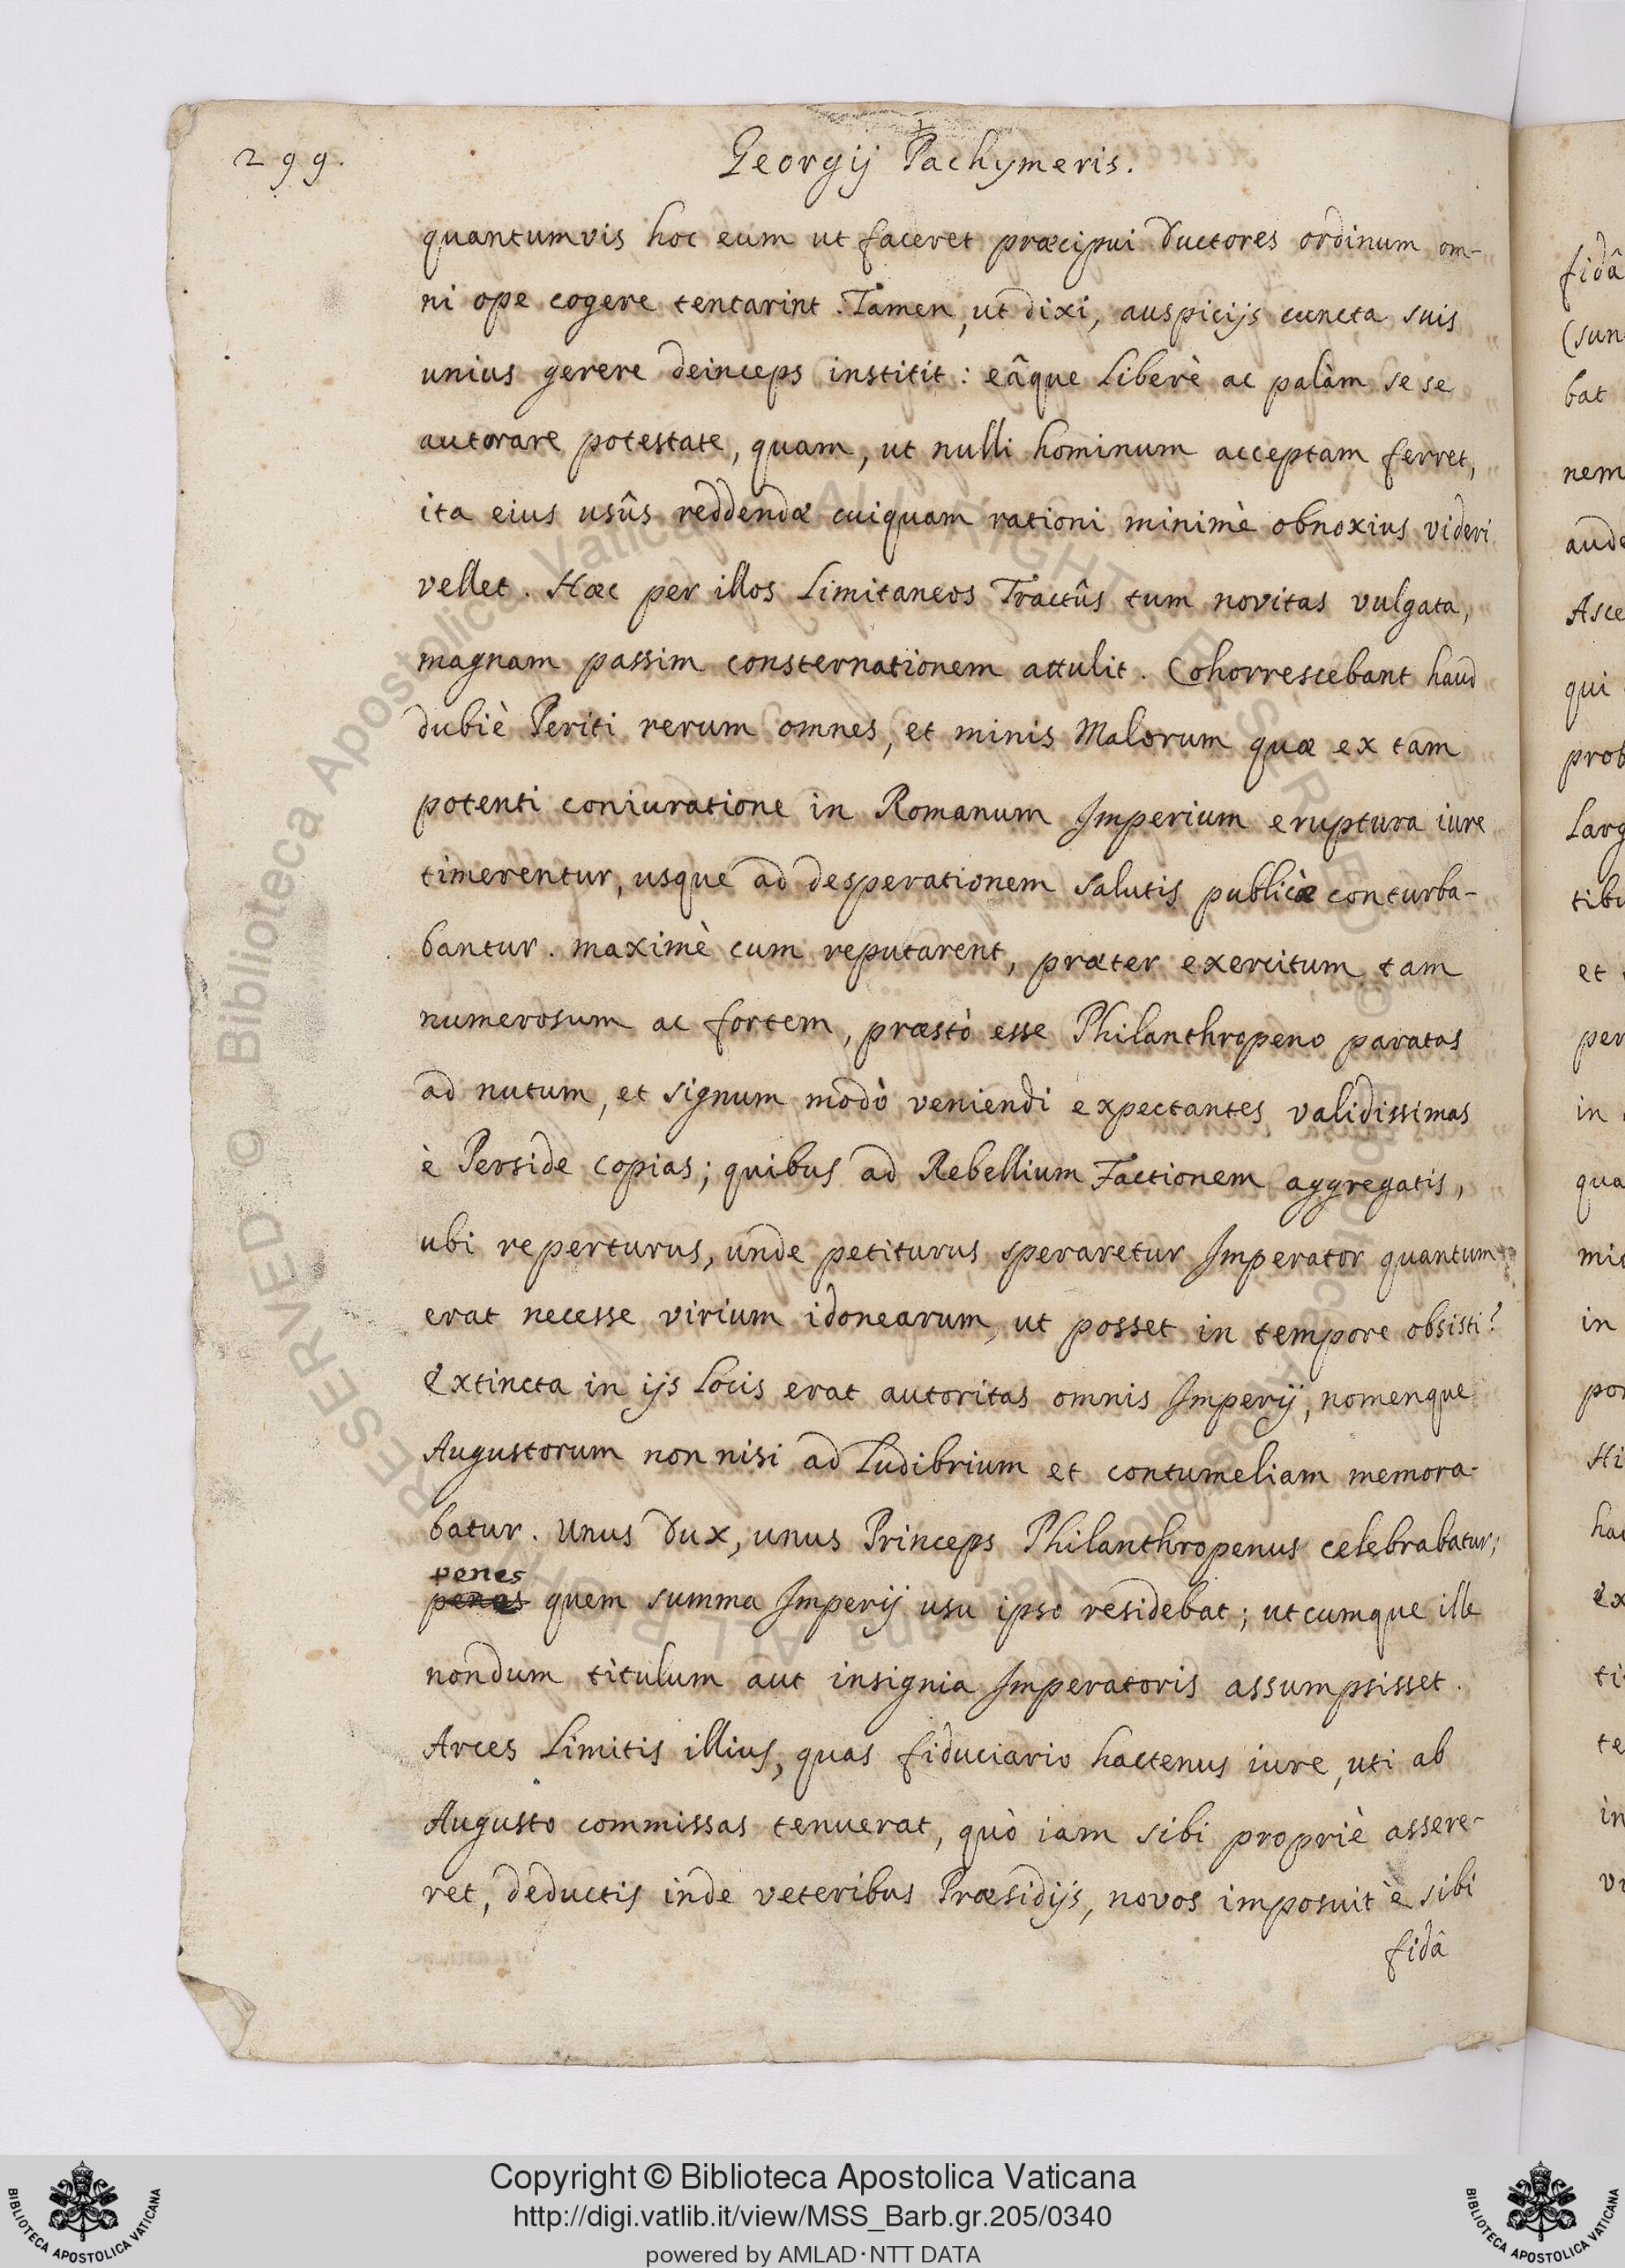 299.
Georgij Pachymeris.
quantumvis hoc eum ut faceret præcipui Ductores ordinum om-
ni ope cogere tentarint. Tamen, ut dixi, auspicijs cuncta suis
unius gerere deinceps institit: eâque Liberè ac palàm se se
autorare potestate, quam, ut nulli hominum acceptam ferret,
ita eius usûs reddendæ cuiquam rationi minimè obnoxius videri
vellet. Hæc per illos Limitaneos Tractûs tum novitas vulgata,
magnam passim consternationem attulit. Cohorrescebant haud
dubiè Periti rerum omnes, et minis Malorum quæ ex tam
potenti coniuratione in Romanum Imperium eruptura iure
timerentur, usque ad desperationem salutis publicæ conturba-
bantur. maximè cum reputarent, præter exercitum tam
numerosum ac fortem, præstò esse Philanthropeno paratas
ad nutum, et signum modò veniendi expectantes validissimas
è Perside copias; quibus ad Rebellium Factionem aggregatis,
ubi reperturus, unde petiturus speraretur Imperator quantum
erat necesse virium idonearum, ut posset in tempore obsisti?
Extincta in ijs Locis erat autoritas omnis Imperij, nomenque
Augustorum non nisi ad Ludibrium et contumeliam memora-
batur. Unus Dux, unus Princeps Philanthropenus celebrabatur;
penes
quem summa Imperij usu ipso residebat; utcumque ille
nondum titulum aut insignia Imperatoris assumpsisset.
Arces Limitis illius, quas fiduciario hactenus iure, uti ab
Augusto commissas tenuerat, quò iam sibi propriè assere-
ret, deductis inde veteribus Præsidijs, novos imposuit è sibi
fidâ
fidâ
(sun
bat
nem
aude
Asce
qui
prob
Larg
tibu
et
per
in
qua
mic
in
por
Hi
hac
ex
ti
te
in
Copyright © Biblioteca Apostolica Vaticana
http://digi.vatlib.it/view/MSS_Barb.gr.205/0340
powered by AMLAD·NTT DATA
BIBLIOTECA APOSTOLICA VATICANA
BIBLIOTECA APOSTOLICA VATICANA
© Biblioteca Apostolica Vaticana ALL RIGHTS RESERVED
© Biblioteca Apostolica Vaticana ALL RIGHTS RESERVED